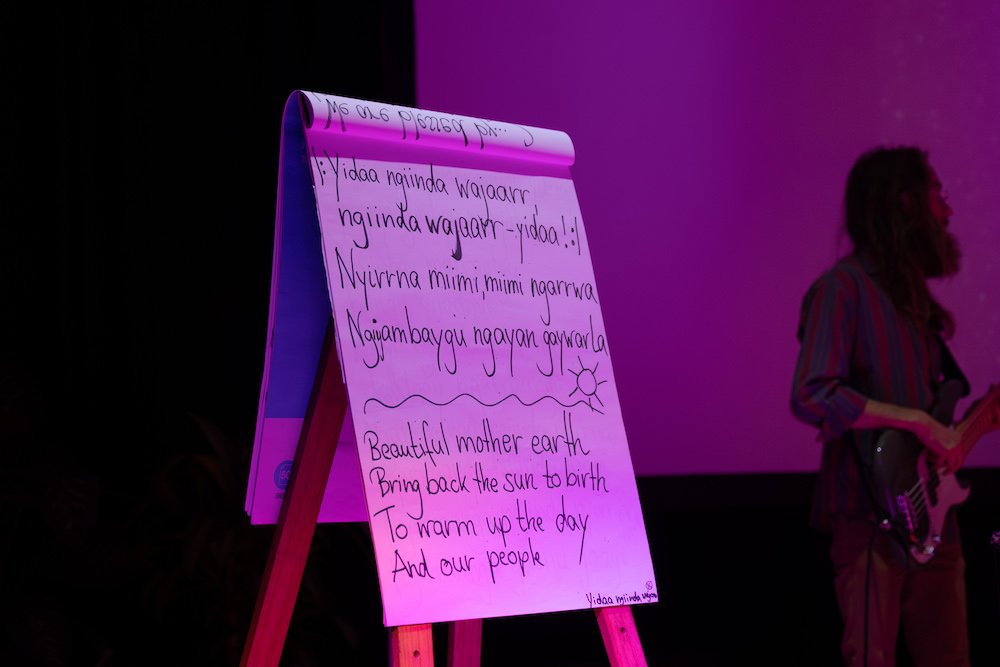 We are pleased
|:Yidaa ngiinda wajaarr,
ngiinda wajaarr-yidaa!:|
Nyirrna miimi, miimi ngarrwa
ngayan gaywarla
Beautiful mother earth
Bring back the sun to birth
To warm up the day
And our people
Yidaa